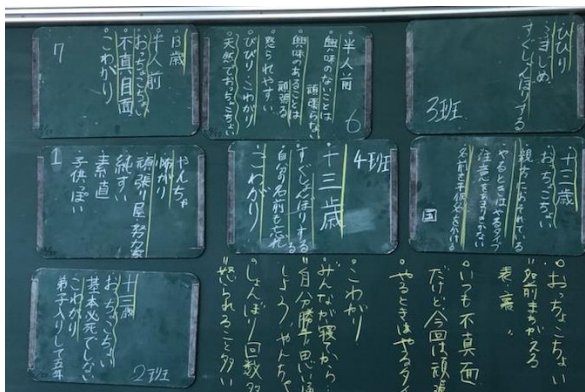 びびり
ふまじめ
すぐしょんぼりする
3班
半人前
興味のないことは
頑張らない
興味のあることは
頑張る
怒られやすい
びびり・こわがり
天然でおっちょこちょい
6
13歳
半人前
おっちょこちょい
不真面目
こわがり
7
十三歳
おっちょこちょい
親方におこられている
やるときはやるタイプ
4班
十三歳
すぐしょんぼりする
自分の名前も忘れ
こわがり
やんちゃ
怖がり
頑張り屋・努力家
純すい
素直
子供っぽい
1
十三歳
おっちょこちょい
基本必死でしない
こわがり
弟子入りして五年
2班
おっちょこちょい
名前まちがえる
いつも不真面
だけど今回は頑張
やるときはやるタイ
こわがり
みんなが寝てから
自分勝手
やんちゃ
しょんぼり回数多
怒られること多い